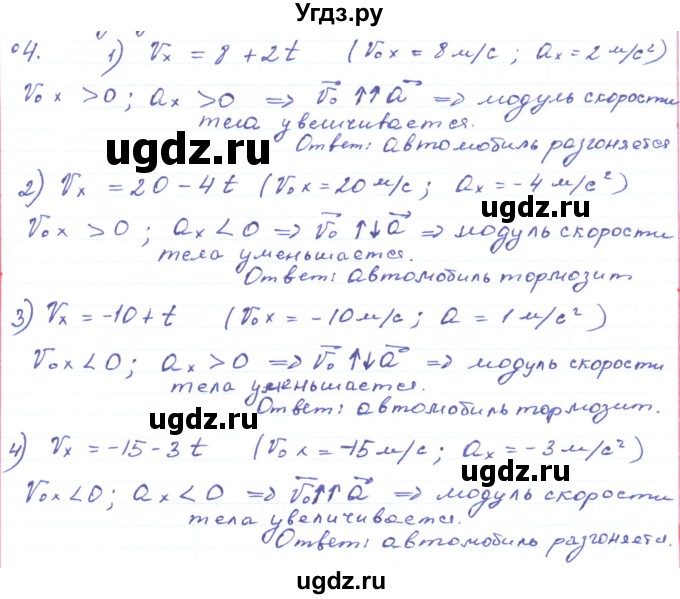 Угдз.ру
04. 1) Vx = 8 + 2t (V₀x = 8 м/с ; ax = 2 м/с²)
V₀x >0 ; ax >0 => V⃗₀ ↑↑ a⃗ => модуль скорости
тела увеличивается.
Ответ: автомобиль разгоняется
ugdz.ru
2) Vx = 20 - 4t (V₀x = 20 м/с ; ax = -4 м/с²)
ugdz.ru
V₀x >0 ; ax <0 => V⃗₀ ↑↓ a⃗ => модуль скорости
тела уменьшается.
Ответ: автомобиль тормозит
3) Vx = -10 + t (V₀x = -10 м/с ; a = 1 м/с²)
ugdz.ru
V₀x <0 ; ax >0 => V⃗₀ ↑↓ a⃗ => модуль скорости
тела уменьшается.
Ответ: автомобиль тормозит.
ugdz.ru
4) Vx = -15 - 3t (V₀x = -15 м/с ; ax = -3 м/с²)
ugdz.ru
V₀x <0 ; ax <0 => V⃗₀ ↑↑ a⃗ => модуль скорости
тела увеличивается.
Ответ: автомобиль разгоняется.
ugdz.ru
ugdz.ru